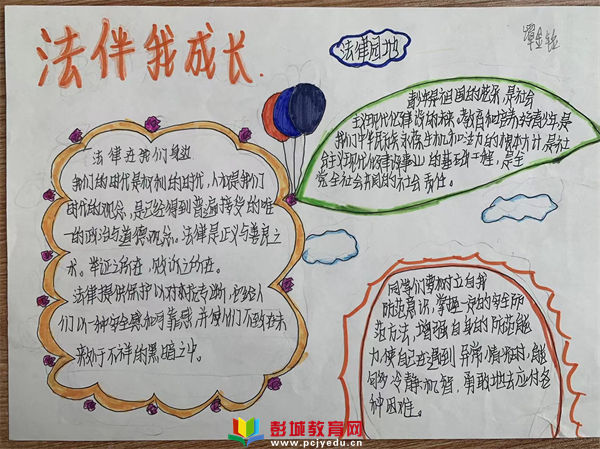 法伴我成长.
法律园地
谭金铉
法律在我们身边
我们的时代是权利的时代,人权是我们
时代的观念,是已经得到普遍接受的唯
一的政治与道德观念。法律是正义与善良之
术。举证之所在,败诉之所在。
法律提供保护以对抗专断,它给人
们以一种安全感和可靠感,并使人们不致在未
来处于不祥的黑暗之中。
青少年是祖国的花朵,是社会
主义现代化建设的希望,教育和培养好青少年,是
我们中华民族永葆生机和活力的根本大计,是社
会主义现代化建设事业的基础工程,是全
党全社会共同的社会责任。
同学们要树立自我
防范意识,掌握一定的安全防
范方法,增强自身的防范能
力,使自己在遇到异常情况时,能
够冷静机智,勇敢地去应付各
种困难。
彭城教育网
www.pcjyedu.cn